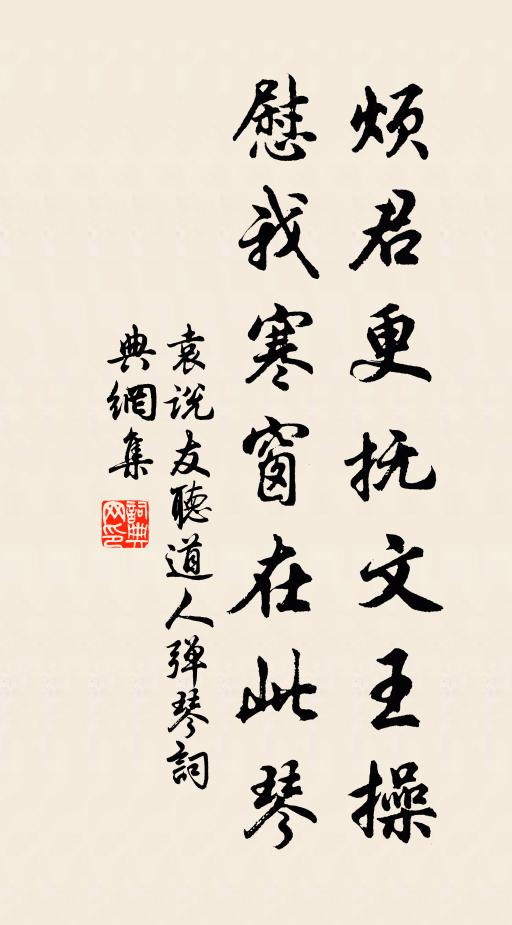 烦君更抚文王操
慰我寒窗在此琴
袁说友聽道人弹琴詞
典網集
詞典网印